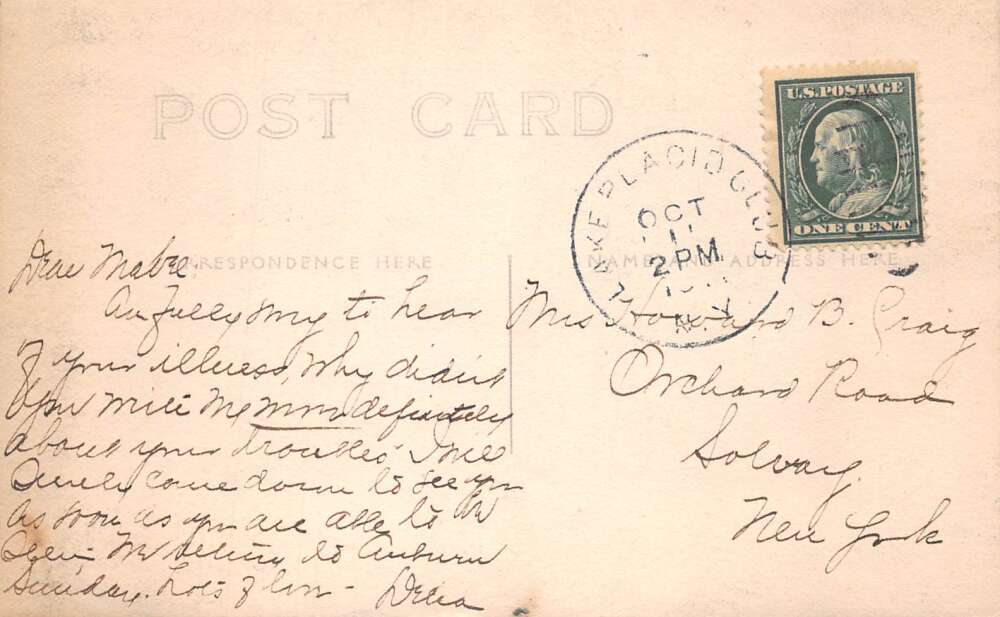 POST CARD
U.S. POSTAGE
ONE CENT
LAKE PLACID CLUB
OCT
11
2 PM
N.Y.
CORRESPONDENCE HERE
NAME AND ADDRESS HERE
Dear Mabel
Awfully sorry to hear
of your illness, Why didn't
you write me more definitely
about your troubles I will
Surely come down to see you
As soon as you are able to be
We return to Auburn
Sunday. Lots of love - Delia
Mrs Howard B. Craig
Orchard Road
Solvay.
New York